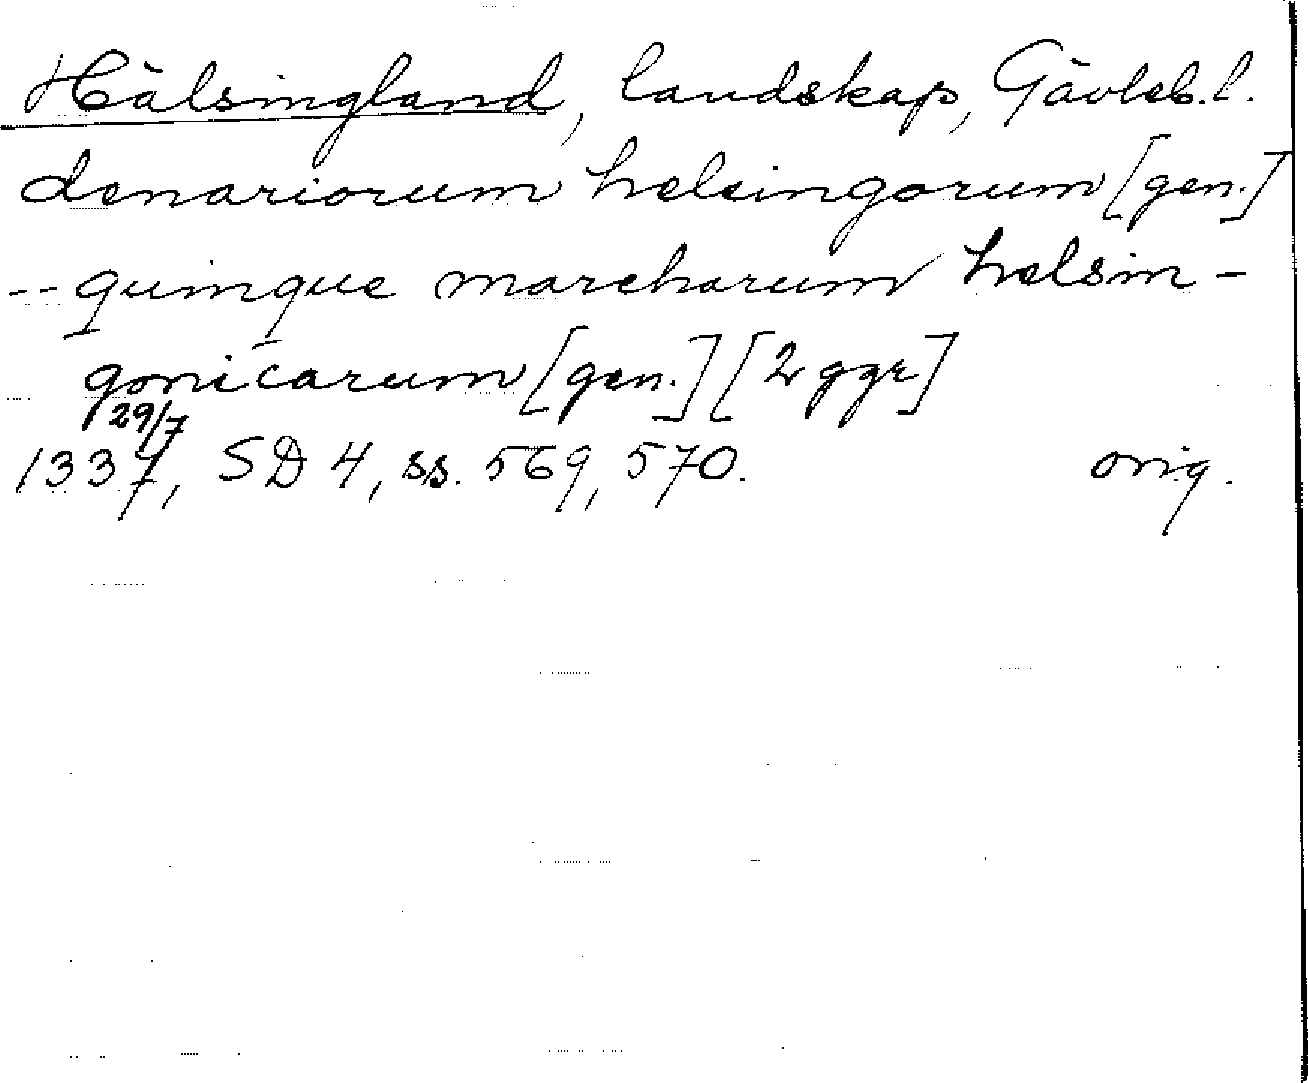 Hälsingland, landskap, Gävleb. l.
denariorum helsingorum [gen.]
-- quinque marcharum helsin-
gonicarum [gen.] [2 ggr]
29/7
1337, SD 4, ss. 569, 570. orig.